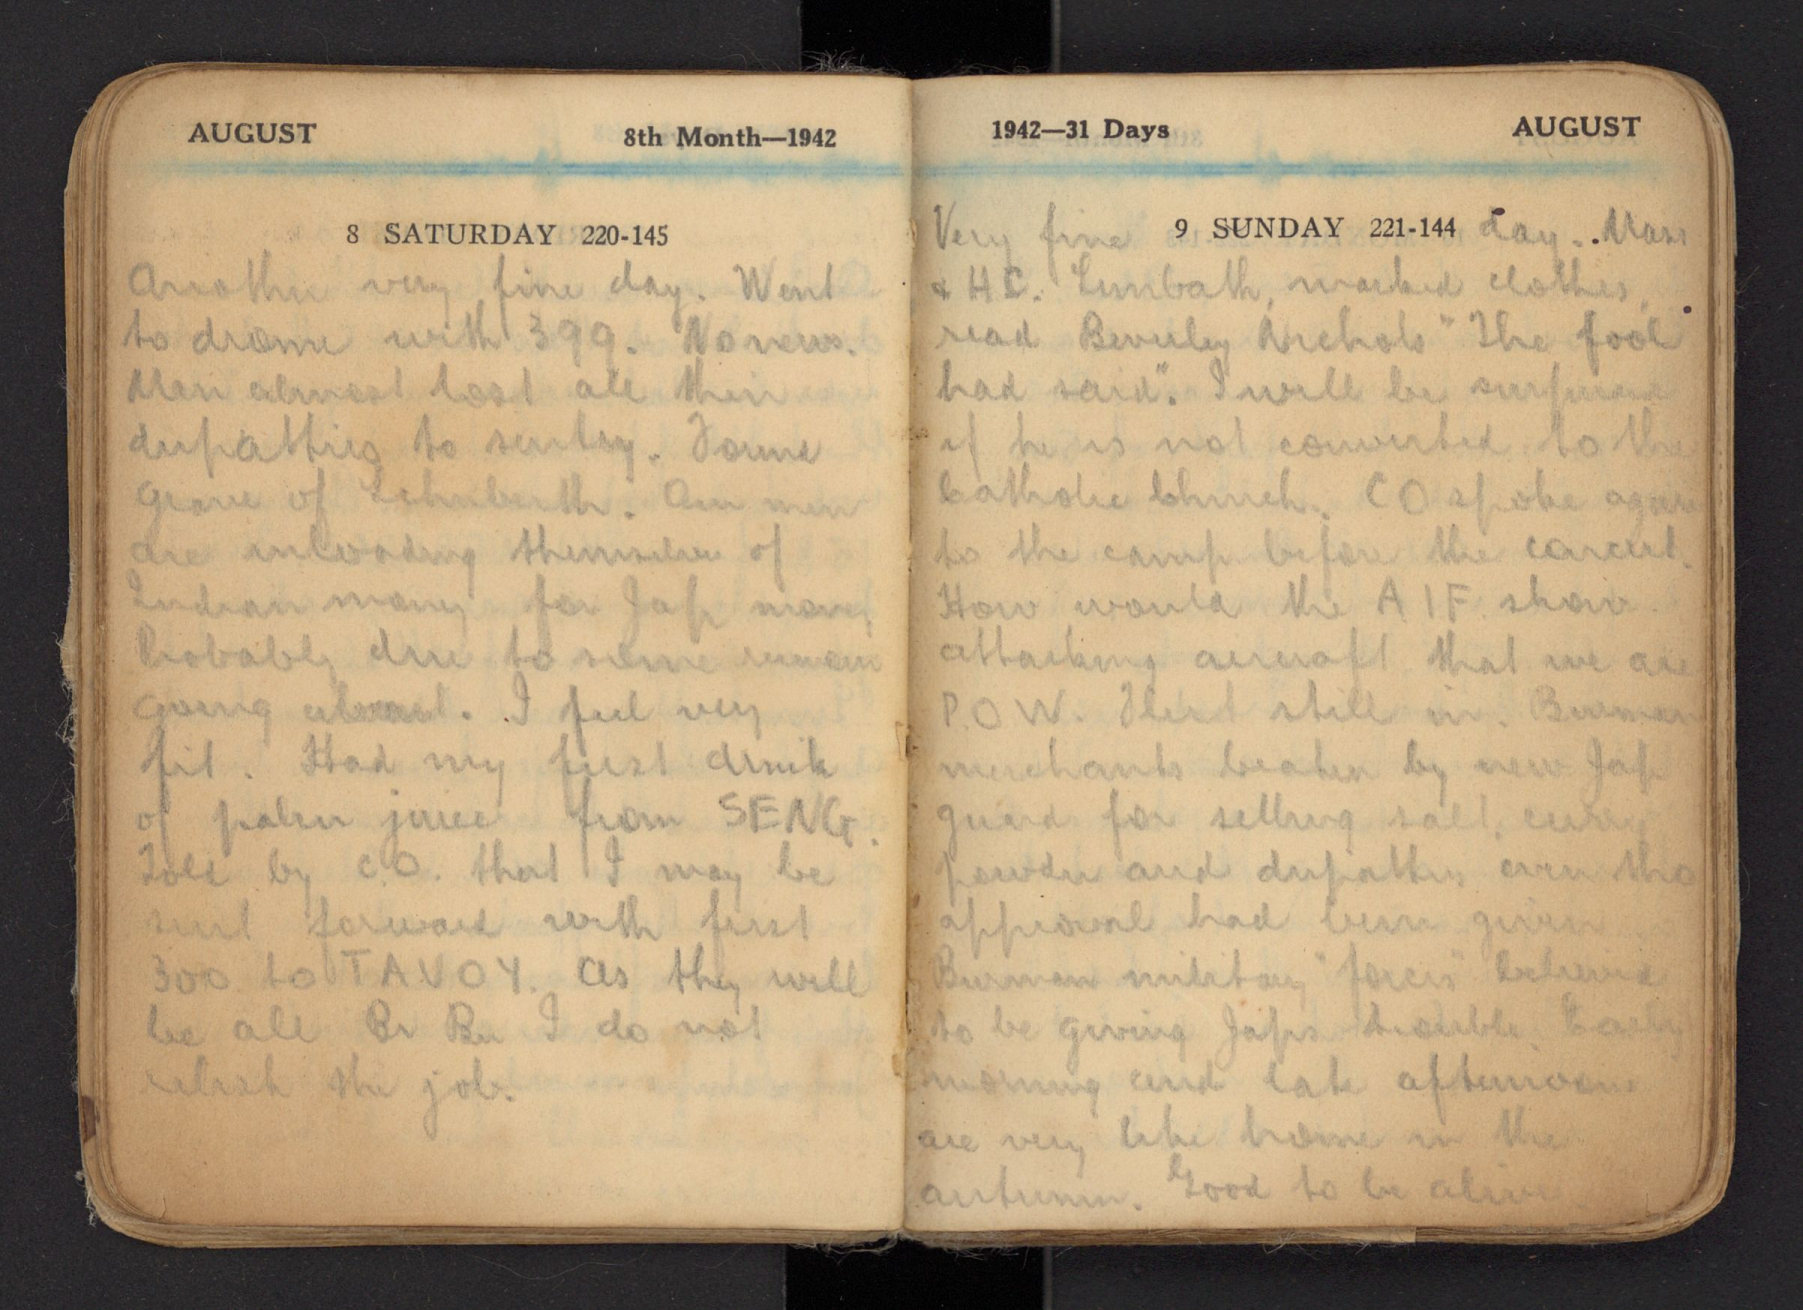 AUGUST 8th Month—1942
8 SATURDAY 220-145
Another very fine day. Went
to drome with 399. No news.
Men almost lost all their
dupatties to sentry. Found
grave of Schuberth. Our men
are unloading themselves of
Indian money for Jap money
Probably due to some rumour
going about. I feel very
fit. Had my first drink
of palm juice from SENG.
Told by C.O. that I may be
sent forward with first
300 to TAVOY. As they will
be all Br Bn I do not
relish the job.
1942—31 Days AUGUST
Very fine 9 SUNDAY 221-144 day. Mass
& HC. Sunbath, washed clothes,
read Beverley Nichols "The fool
had said". I will be surprised
if he is not converted to the
Catholic Church. CO spoke again
to the camp before the concert.
How would the AIF show
attacking aircraft that we are
P.O.W. still in. Burman
merchants beaten by new Jap
guard for selling salt, curry
powder and dupatties even tho
approval had been given
Burman military "forces" believed
to be giving Japs trouble. Early
morning and late afternoon
are very like home in the
autumn. Good to be alive